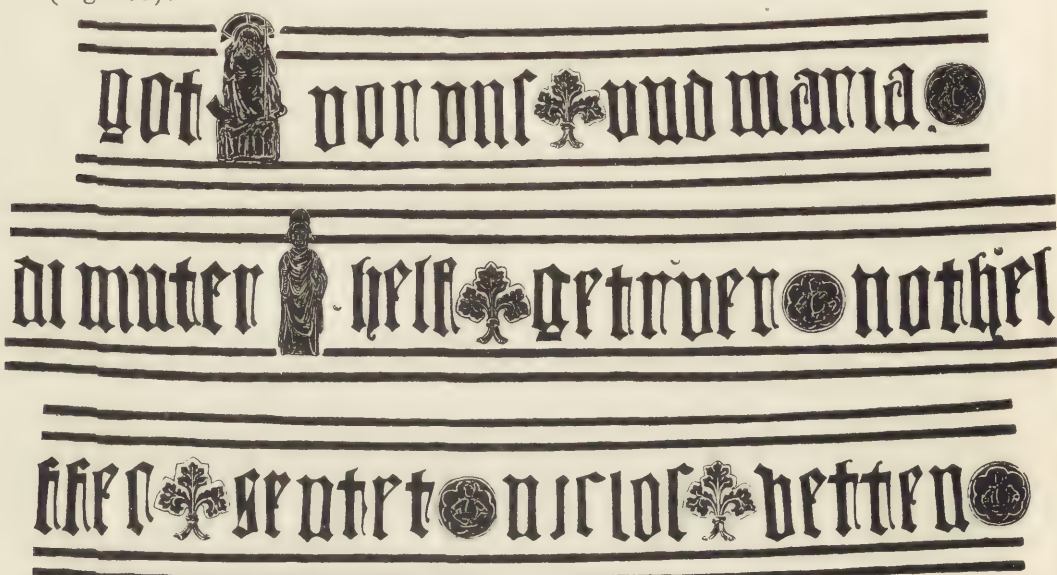 got vor vns vnd maria.
di muter helf getruer nothel
ffer sentet niclos vetten